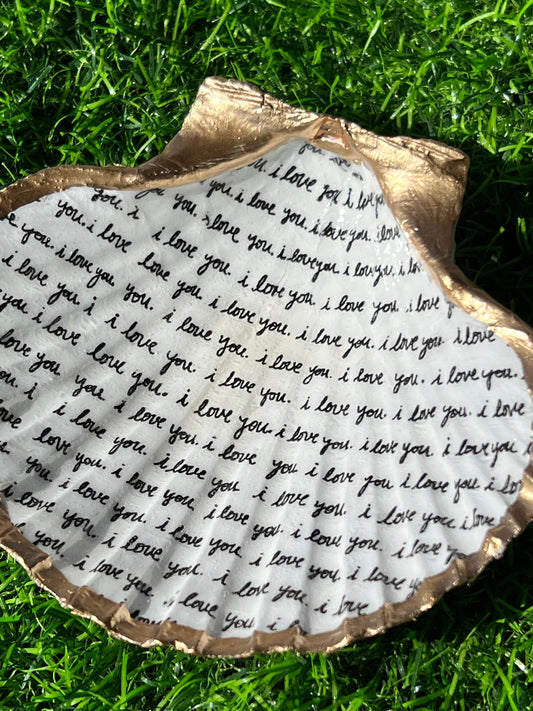 i love you. i love
you. i love you. i love you. i love
you. i love you. i love you. i love you. i lov
you. i love you. i love you. i love you. i love
you. i love you. i love you. i love you. i love you. i love
i love you. i love you. i love you. i love you. i love you.
you. i love you. i love you. i love you. i love you. i love
i love you. i love you. i love you. i love you. i love you.
you. i love you. i love you i love you i love you i lo
i love you. i love you. i love you. i love you i love
you. i love you. i love you. i love you. i love you
i love you. i love you. i love you. i love